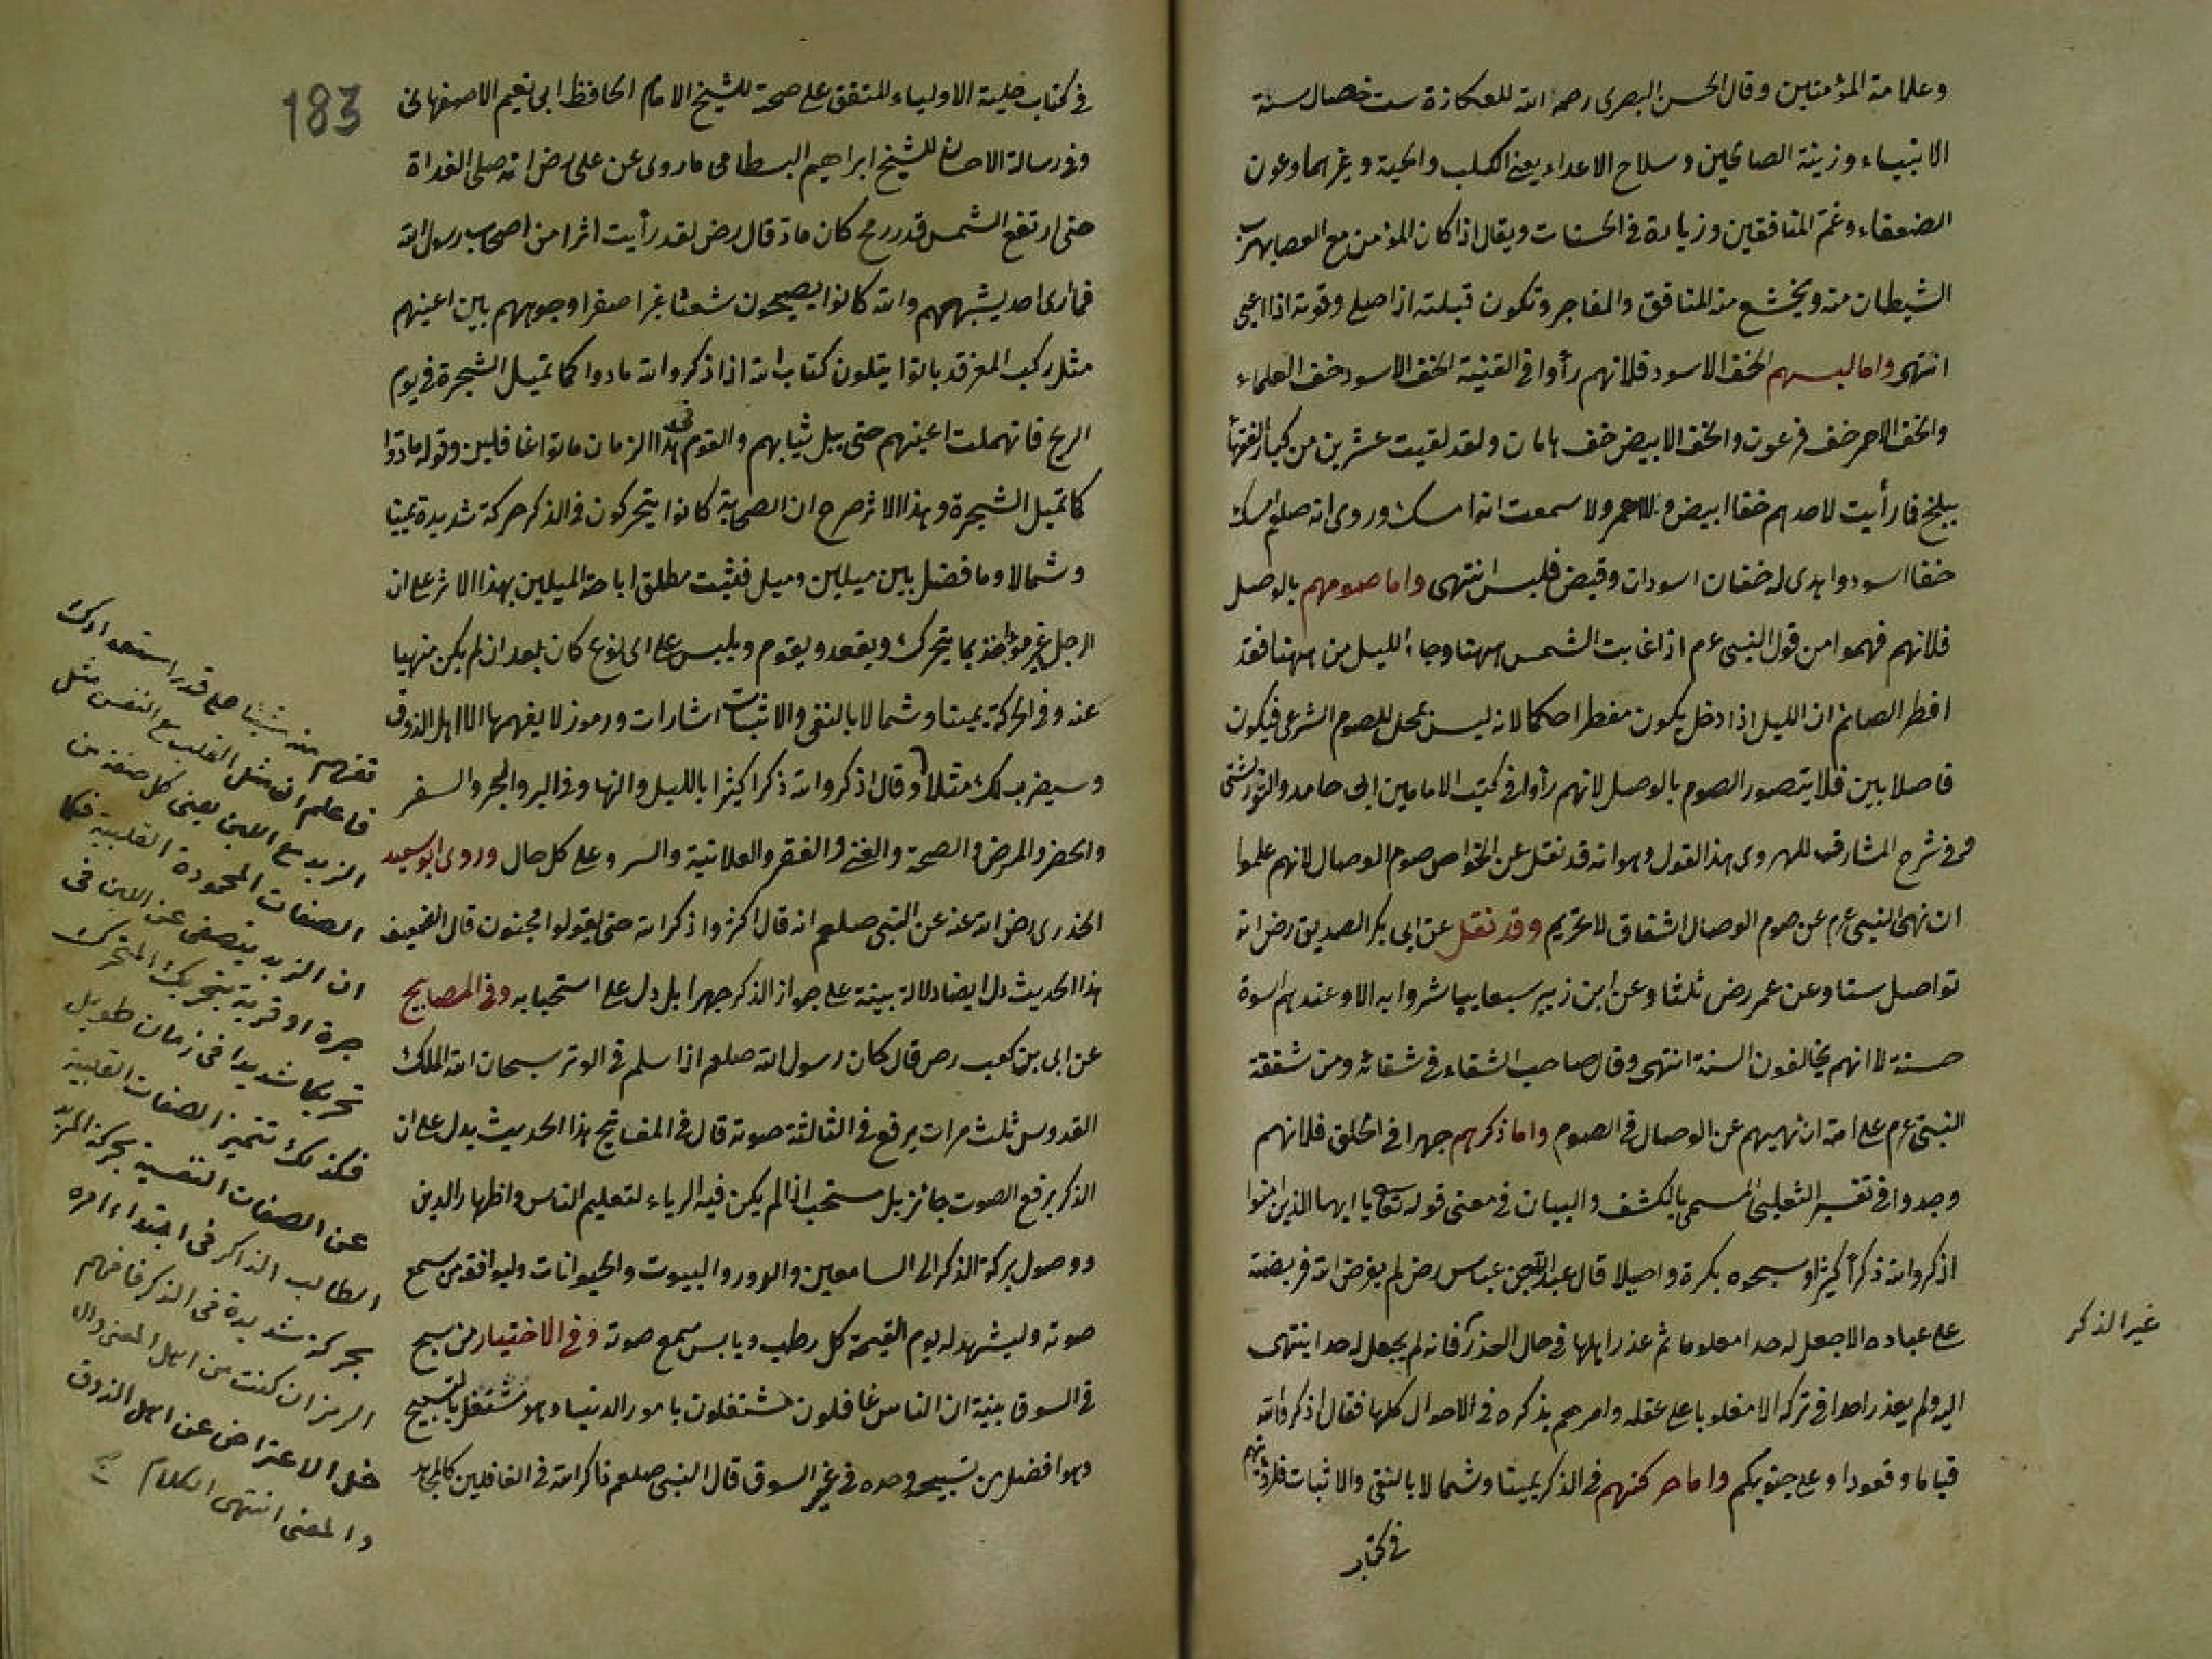 وعلامة المؤمنين وقال الحسن البصرى رحمه الله للعكازة ست خصال سنة
الانبياء وزينة الصالحين وسلاح الاعداء يعنى الكلب والحية وغيرهما وعون
الضعفاء وغم المنافقين وزيادة فى الحسنات ويقال اذا كان المؤمن مع العصا يهرب
الشيطان منه ويخشع منه المنافق والفاجر وتكون قبلته اذا صلى وقوته اذا اعيى
انتهى واما لبسهم الخف الاسود فلانهم رأوا فى القنية الخف الاسود خف العلماء
والخف الاحمر خف فرعون والخف الابيض خف هامان ولقد لقيت عشرين من كبار فقهاء
ببلخ فما رأيت لاحدهم خفا ابيض ولا احمر ولا سمعت انه امسك وروى انه صلعم امسك
خفا اسود واهدى له خفان اسودان وقبض فلبس انتهى واما صومهم بالوصل
فلانهم فهموا من قول النبى عم اذا غابت الشمس ههنا وجاء الليل من ههنا فقد
افطر الصائم ان الليل اذا دخل يكون مفطرا حكما لانه ليس بمحل للصوم الشرعى فيكون
فاصلا بين فلا يتصور الصوم بالوصل لانهم رأوا فى كتب الامامين ابى حامد والتوربشتى
وفى شرح المشارق للهروى هذا القول وهو انه قد نقل عن الخواص صوم الوصال لانهم علموا
ان نهى النبى عم عن صوم الوصال اشفاق لا تحريم وقد نقل عن ابى بكر الصديق رض انه
تواصل ستا وعن عمر رض ثلثا وعن ابن زبير سبعا باشروا به الا وعندهم اسوة
حسنة لا انهم يخالفون السنة انتهى وقال صاحب الشفاء فى شفائه ومن شفقة
النبى عم على امته ان نهيهم عن الوصال فى الصوم واما ذكرهم جهرا فى الحلق فلانهم
وجدوا فى تفسير الثعلبى المسمى بالكشف والبيان فى معنى قوله تعا يا ايها الذين امنوا
اذكروا الله ذكرا كثيرا وسبحوه بكرة واصيلا قال عبد الله بن عباس رض لم يفرض الله فريضة
على عباده الا جعل له حدا معلوما ثم عذر اهلها فى حال العذر فانه لم يجعل له حدا ينتهى
اليه ولم يعذر احدا فى تركه الا مغلوبا على عقله وامرهم بذكره فى الاحوال كلها فقال اذكروا الله
قياما وقعودا وعلى جنوبكم واما حركتهم فى الذكر يمينا وشمالا بالنفى والاثبات فلرؤيتهم
فى كتاب
غير الذكر
183
فى كتاب حلية الاولياء المتفق على صحة للشيخ الامام الحافظ ابى نعيم الاصفهانى
وفى رسالة الاحسان للشيخ ابراهيم البسطامى ما روى عن على رض انه صلى الغداة
حتى ارتفع الشمس قدر رمح كان مادة قال رض لقد رأيت اثرا من اصحاب رسول الله
فما ارى احد يشبههم والله كانوا يصبحون شعثا غبرا صفرا وجوههم بين اعينهم
مثل ركب المعز قد باتوا يتلون كتاب الله اذا ذكروا الله مادوا كما تميل الشجرة فى يوم
الريح فانهملت اعينهم حتى يبل ثيابهم والقوم فى هذا الزمان ماتوا غافلين وقوله مادوا
كما تميل الشجرة وهذا الاثر صرح ان الصحابة كانوا يتحركون فى الذكر حركة شديدة يمينا
وشمالا وما فضل بين ميلين وميل فيثبت مطلق اباحة الميلين بهذا الاثر على ان
الرجل غير مؤاخذ بما يتحرك ويقعد ويقوم ويلبس على اى نوع كان بعد ان لم يكن منهيا
عنه وفى الحركة يمينا وشمالا بالنفى والاثبات اشارات ورموز لا يفهمها الا اهل الذوق
وسيضرب لك مثلا وقال اذكروا الله ذكرا كثيرا بالليل والنهار وفى البر والبحر والسفر
والحضر والمرض والصحة والغنى والفقر والعلانية والسر وعلى كل حال وروى ابو سعيد
الخذرى رض الله عنه عن النبى صلعم انه قال اكثروا ذكر الله حتى يقولوا مجنون قال الضعيف
هذا الحديث دل ايضا دلالة بينة على جواز الذكر جهرا بل دل على استحبابه وفى المصابيح
عن ابى بن كعب رض قال كان رسول الله صلعم اذا سلم فى الوتر سبحان الله الملك
القدوس ثلث مرات يرفع فى الثالثة صوته قال فى المفاتيح هذا الحديث يدل على ان
الذكر برفع الصوت جائز بل مستحب اذا لم يكن فيه الرياء لتعليم الناس واظهار الدين
ووصول بركة الذكر الى السامعين والدور والبيوت والحيوانات وليوافقه من سمع
صوته وليشهد له يوم القيمة كل رطب ويابس سمع صوته وفى الاختيار من سبح
فى السوق بنية ان الناس غافلون مشتغلون بامور الدنيا وهو مشتغل بالتسبيح
وهو افضل من تسبيحه وحده فى غير السوق قال النبى صلعم ذاكر الله فى الغافلين كالمجاهد
تفهم منه شيئا على قدر استعدادك
فاعلم ان مثل القلب مع النفس مثل
الزبد مع اللبن يعنى كل صفة من
الصفات المحمودة القلبية فكما
ان الزبد يتصفى عن اللبن فى
جرة او قربة بتحريك المتحرك
تحريكا شديدا فى زمان طويل
فكذلك تتميز الصفات القلبية
عن الصفات النفسية بحركة المريد
الطالب الذاكر فى ابتداء امره
بحركة شديدة فى الذكر فافهم
الرمز ان كنت من اهل المعنى والا
خل الاعتراض عن اهل الذوق
والمعنى انتهى الكلام